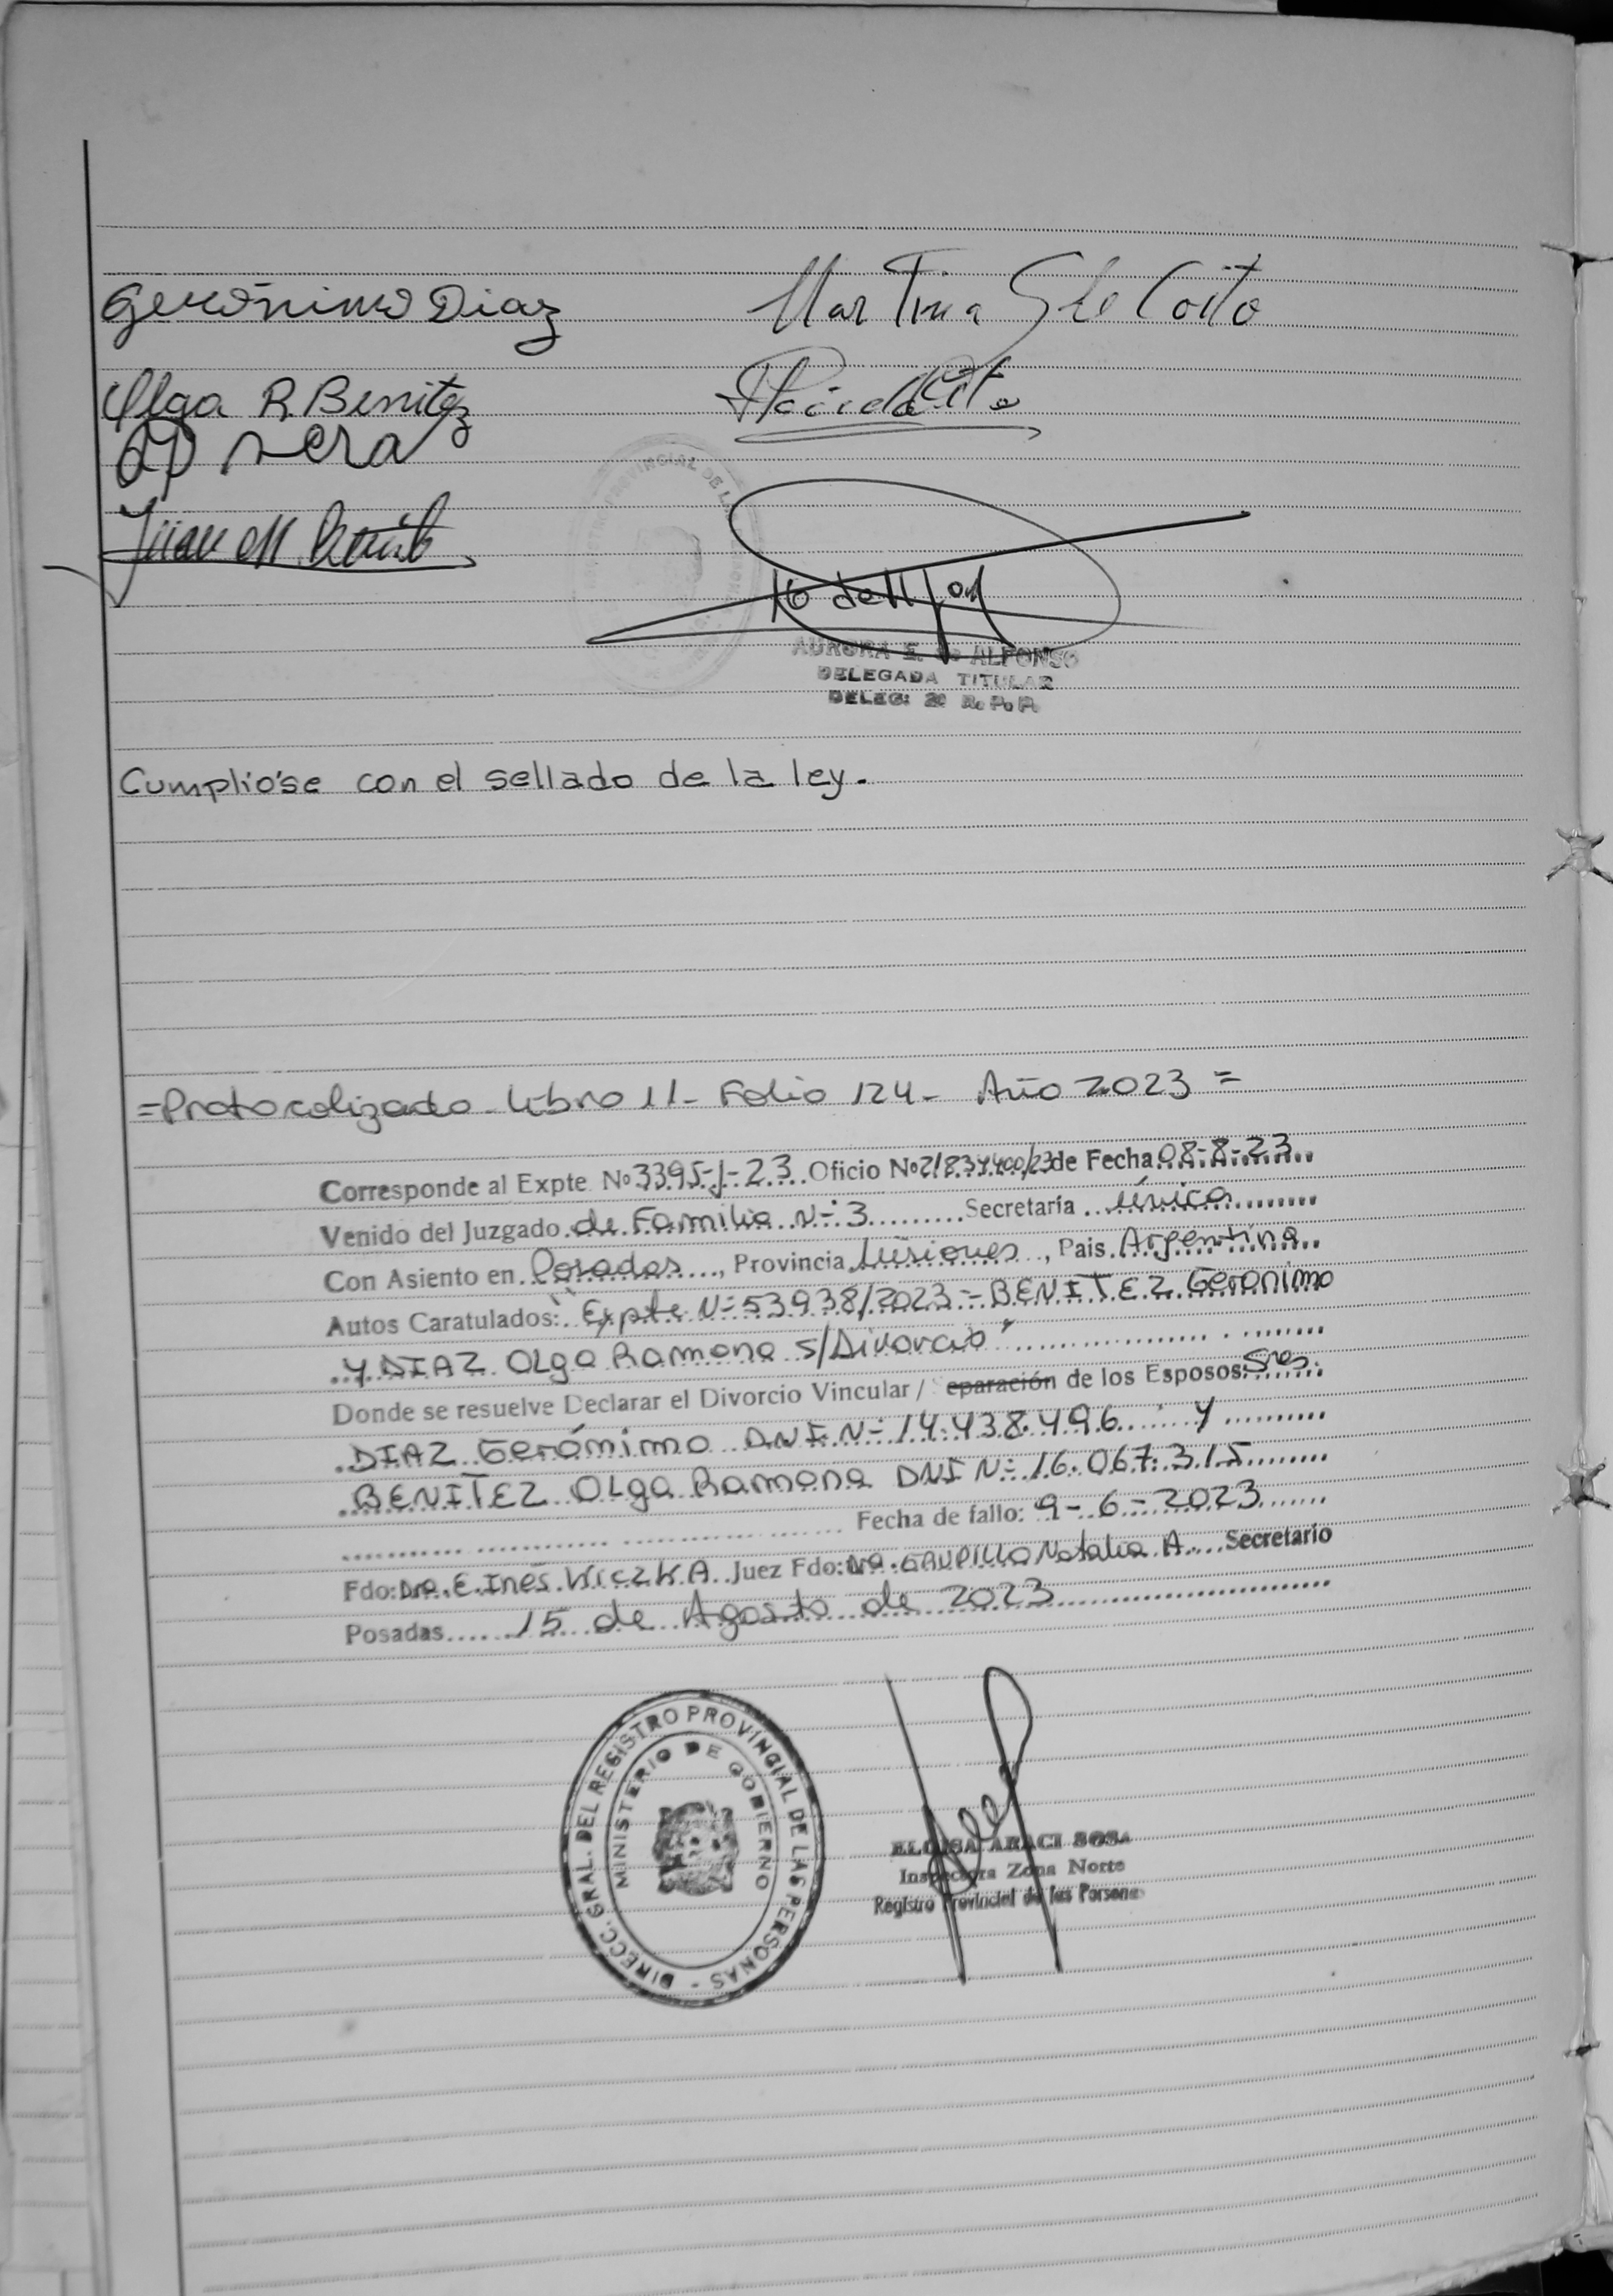 Gerónimo Diaz
Martina
Olga R. Benitez
Juan M.
AURORA E. de ALFONSO
DELEGADA TITULAR
DELEG: 2ª R. P. P.
Cumplióse con el sellado de la ley.
=Protocolizado - Libro 11 - Folio 124 - Año 2023 =
Corresponde al Expte. Nº 3395-J-23 Oficio Nº de Fecha 08-8-23
Venido del Juzgado de Familia Nº 3 Secretaría única
Con Asiento en Posadas, Provincia Misiones, Pais Argentina
Autos Caratulados: "Expte Nº 53938/2023 - BENITEZ Geronimo
y DIAZ Olga Ramona s/Divorcio"
Donde se resuelve Declarar el Divorcio Vincular / eparación de los Esposos: Sres.
DIAZ Gerónimo DNI Nº 14.438.496 y
BENITEZ OLga Ramona DNI Nº 16.067.315
Fecha de fallo: 9-6-2023
Fdo: Dra. E. Inés WiczKA Juez Fdo: Dra. Natalia A. Secretario
Posadas 15 de Agosto de 2023
DIRECC. GRAL. DEL REGISTRO PROVINCIAL DE LAS PERSONAS -
MINISTERIO DE GOBIERNO
ELOISA ARACI SOSA
Inspectora Zona Norte
Registro Provincial de las Personas